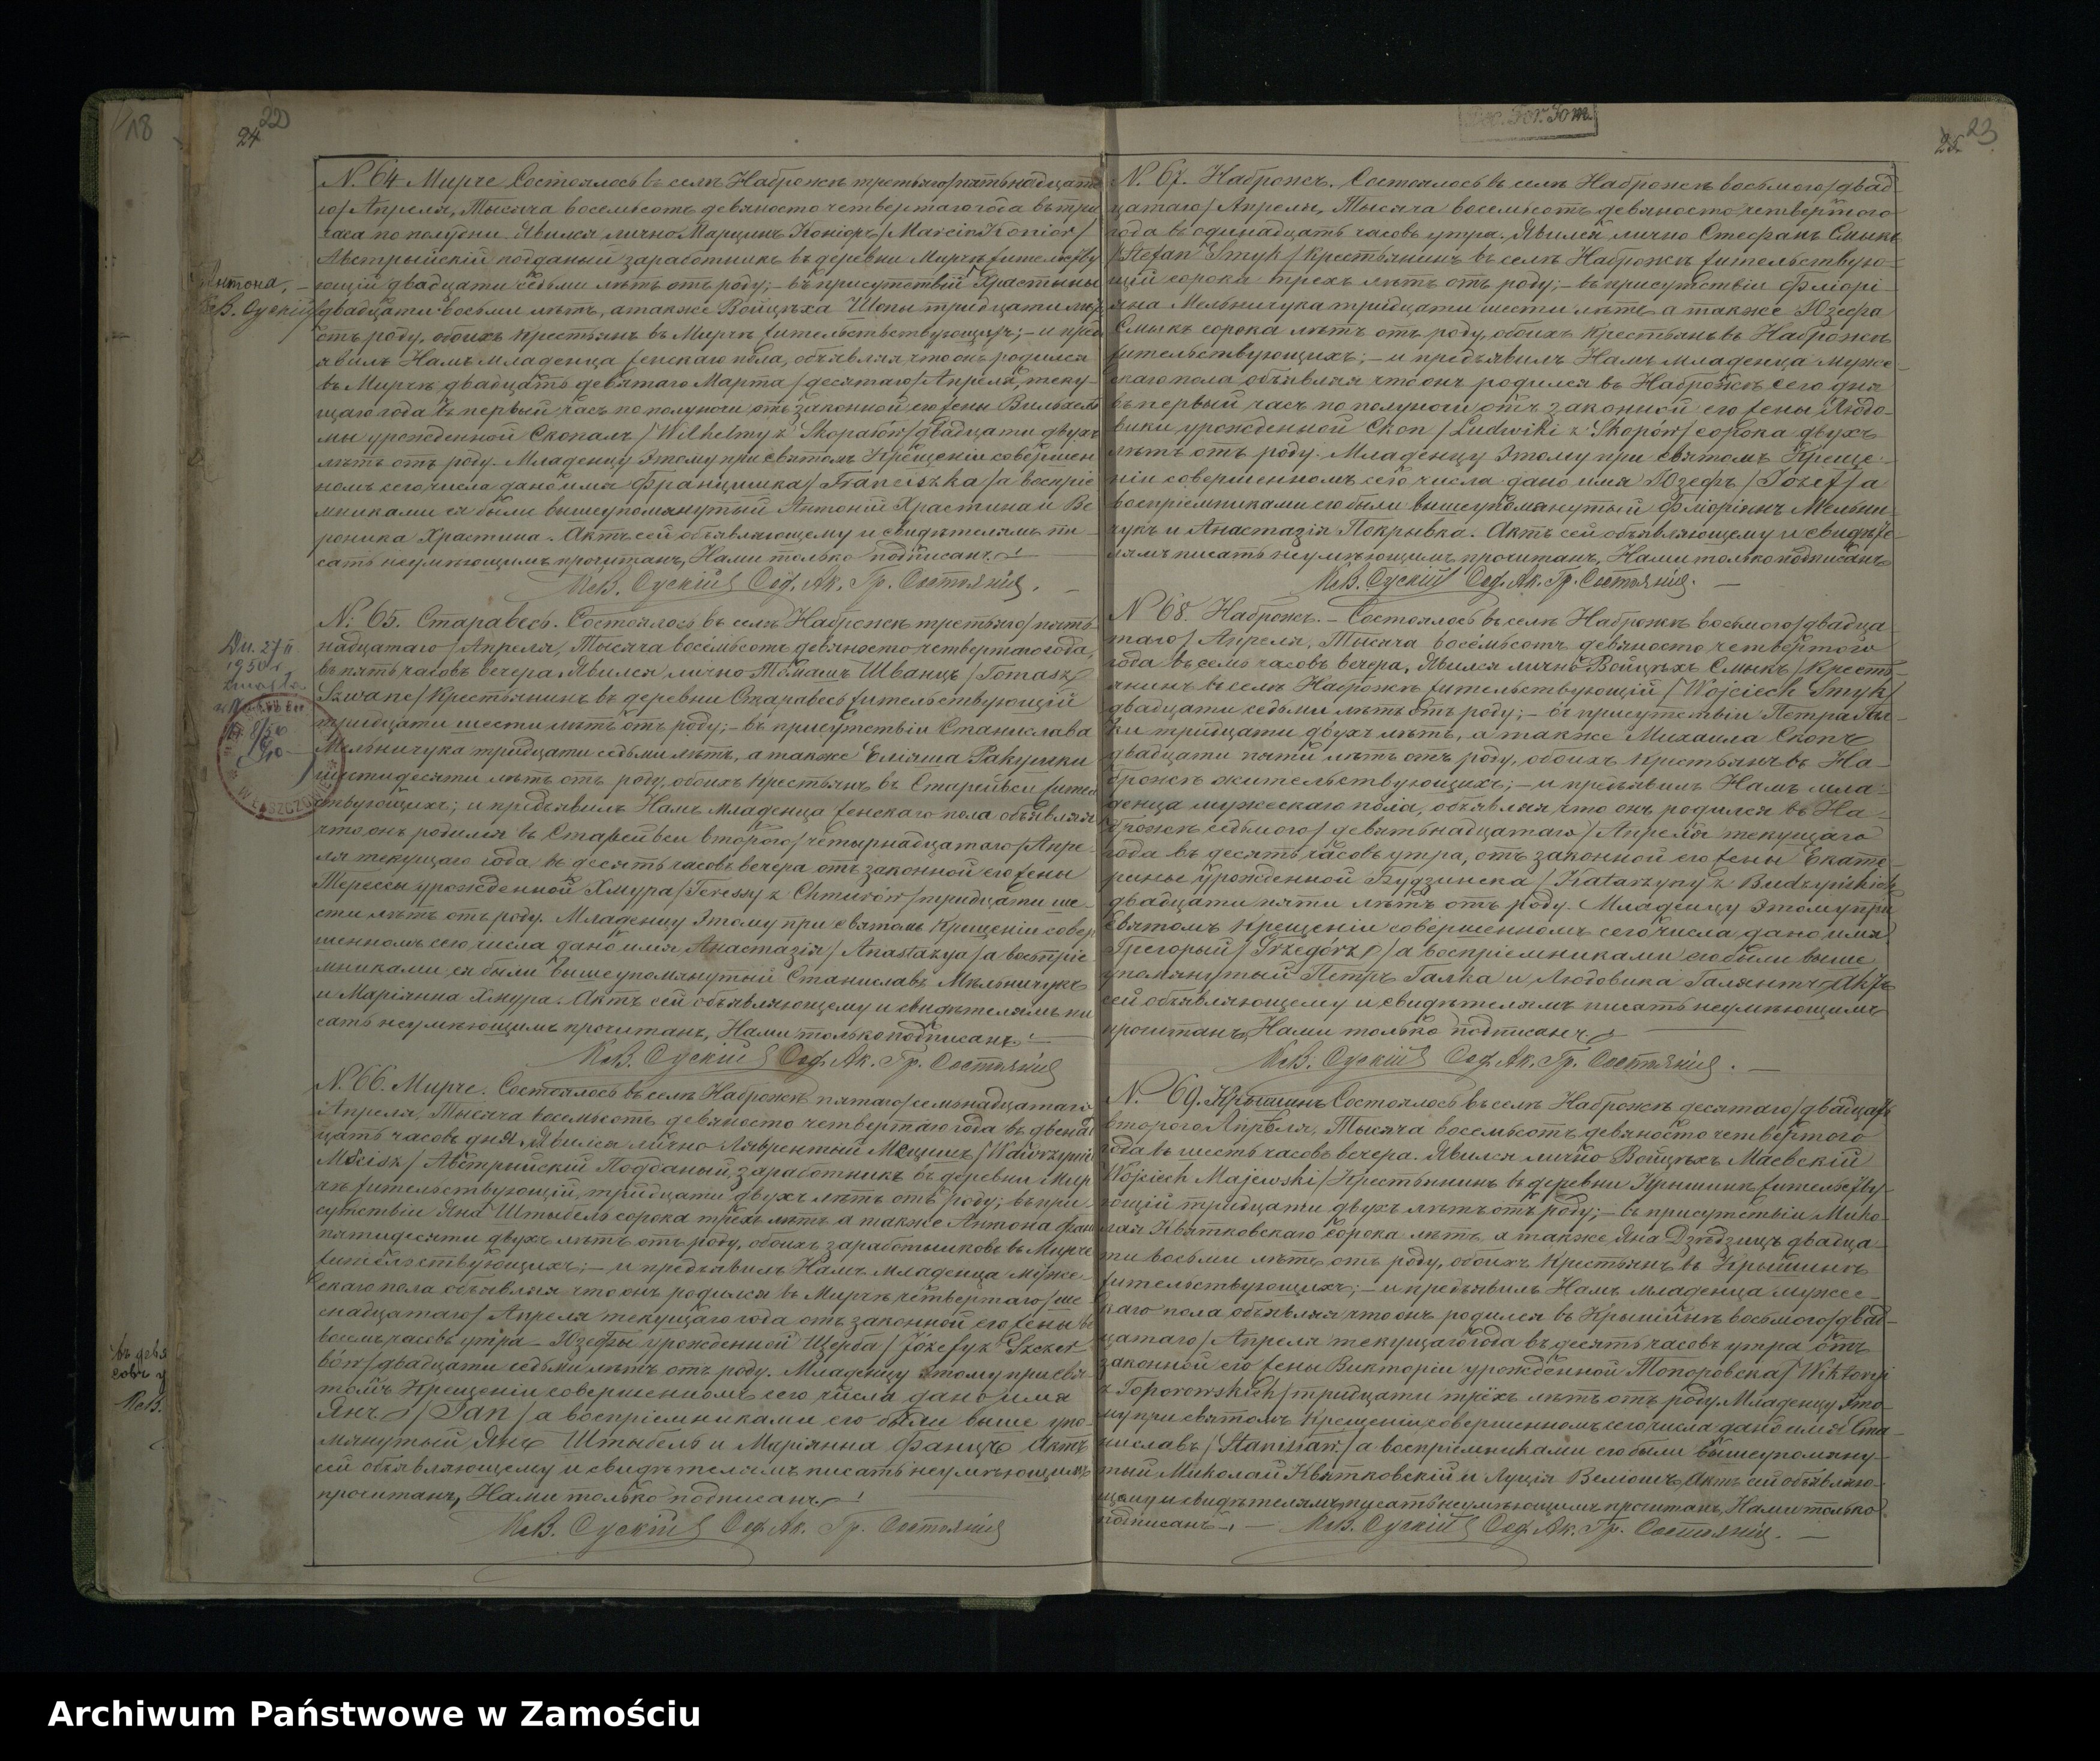 18
24
22
Антона,
Кс.В. Оускій
N. 64 Мирче Состоялось въ селѣ Наброжѣ третьяго/пятьнадцата
го/ Апреля, Тысяча восемьсотъ девяносто четвертаго года въ три
часа по полудни. Явился лично Марцинъ Коніоръ / Marcin Konior /
Австрыйскій подданый заработникъ въ деревни Мирчѣ жительству
ющій двадцати седьми лѣтъ отъ роду; – въ присутствіи Храстины
двадцати восьми лѣтъ, а также Войцѣха Шепы тридцати лѣтъ
отъ роду, обоихъ крестьянъ въ Мирчѣ жительствествующихъ; – и предъ
явилъ Намъ младенца женскаго пола, объявляя что онъ родился
въ Мирчѣ двадцать девятаго Марта / десятаго / Апреля, теку-
щаго года въ первый часъ по полуночи отъ законной его жены Вильгель
мы урожденной Скопалъ / Wilhelmy z Skopałów / двадцати двухъ
лѣтъ отъ роду. Младенцу этому при святомъ Крещеніи совершен
номъ сего числа дано имя Францишка / Franciszka / а воспріе
мниками ея были вышеупомянутый Антоній Храстина и Ве
роника Храстина. Актъ сей объявляющему и свидѣтелямъ пи
сать неумѣющимъ прочитанъ, Нами только подписанъ.
Кс.В. Оускій Сод. Ак. Гр. Состоянія.
Dn. 27 II
1950 r.
zmarła
N. 65. Старавесь. Состоялось въ селѣ Наброжѣ третьяго / пять
надцатаго / Апреля, Тысяча восемьсотъ девяносто четвертаго года,
въ пять часовъ вечера. Явился лично Томашъ Шванцъ / Tomasz
Szwanc / Крестьянинъ въ деревни Старавесь жительствующій
тридцати шести лѣтъ отъ роду; – въ присутствіи Станислава
Мельничука тридцати седьми лѣтъ, а также Еліяша Ракушки
шестидесяти лѣтъ отъ роду, обоихъ крестьянъ въ Старейвси жител
ствующихъ; и предъявилъ Намъ младенца женскаго пола объявляя
что онъ родился въ Старейвси втораго / четырнадцатаго / Апре
ля текущаго года въ десять часовъ вечера отъ законной его жены
Терессы урожденной Хмура / Teressy z Chmurów / тридцати ше
сти лѣтъ отъ роду. Младенцу этому при святомъ крещеніи совер
шенномъ сего числа дано имя Анастазія / Anastazya / а воспріе
мниками ея были вышеупомянутый Станиславъ Мельничукъ
и Маріянна Хмура. Актъ сей объявляющему и свидѣтелямъ пи
сать неумѣющимъ прочитанъ, Нами только подписанъ.
Кс.В. Оускій Сод. Ак. Гр. Состоянія
N. 66. Мирче. Состоялось въ селѣ Наброжѣ пятаго / семьнадцатаго
Апреля, Тысяча восемьсотъ девяносто четвертаго года въ двенад
цать часовъ дня. Явился лично Ляврентый Мсцишъ / Wawrzyniec
Mścisz / Австрыйскій Подданый, заработникъ въ деревни Мир
чѣ жительствующій, тридцати двухъ лѣтъ отъ роду; въ при
сутствіи Яна Штыбель сорока трехъ лѣтъ а также Антона Фан
пятидесяти двухъ лѣтъ отъ роду, обоихъ заработниковъ въ Мирче
жительствующихъ; – и предъявилъ Намъ младенца муже-
скаго пола объявляя что онъ родился въ Мирчѣ четвертаго / ше
снадцатаго / Апреля текущаго года отъ законной его жены въ
восемь часовъ утра – Юзефы урожденной Щерба / Józefy z Szczer-
bów / двадцати седьми лѣтъ отъ роду. Младенцу этому при свя
томъ Крещеніи совершенномъ сего числа дано имя
Янъ / Jan / а воспріемниками его были выше упо-
мянутый Янъ Штыбель и Маріянна Фанцъ Актъ
сей объявляющему и свидѣтелямъ писать неумѣющимъ
прочитанъ, Нами только подписанъ.
Кс.В. Оускій Сод. Ак. Гр. Состоянія
въ девя
совъ у
Кс.В.
25
23
N. 67. Наброжъ. Состоялось въ селѣ Наброжѣ восьмого / двад
цатаго / Апреля, Тысяча восемьсотъ девяносто четвертого
года въ одинадцать часовъ утра. Явился лично Стефанъ Смыкъ
/ Stefan Smyk / Крестьянинъ въ селѣ Наброжѣ жительствую-
щій сорока трехъ лѣтъ отъ роду; – въ присутствіи Флорі
яна Мельничука тридцати шести лѣтъ а также Юзефа
Смыкъ сорока лѣтъ отъ роду, обоихъ Крестьянъ въ Наброжѣ
жительствующихъ; – и предъявилъ Намъ младенца муже-
скаго пола объявляя что онъ родился въ Наброжѣ сего дня
въ первый часъ по полуночи отъ законной его жены Людо-
вики урожденной Скоп / Ludwiki z Skopów / сорока двухъ
лѣтъ отъ роду. Младенцу этому при святомъ Креще-
ніи совершенномъ сего числа дано имя Юзефъ / Józef / а
воспріемниками его были вышеупомянутый Флоріянъ Мельни-
чукъ и Анастазія Покрывка. Актъ сей объявляющему и свидѣте
лямъ писать неумѣющимъ прочитанъ, Нами только подписанъ
Кс.В. Оускій Сод. Ак. Гр. Состоянія.
N 68. Наброжъ. – Состоялось въ селѣ Наброжѣ восьмого / двадца
таго / Апреля, Тысяча восемьсотъ девяносто четвертого
года въ семь часовъ вечера, Явился лично Войцѣхъ Смыкъ / Кресть-
янинъ въ селѣ Наброжѣ жительствующій / Wojciech Smyk /
двадцати седьми лѣтъ отъ роду; – въ присутствіи Петра Гал-
ки тридцати двухъ лѣтъ, а также Михаила Скопъ
двадцати пяти лѣтъ отъ роду, обоихъ крестьянъ въ На-
брожѣ жительствующихъ; – и предъявилъ Намъ мла-
денца мужескаго пола, объявляя, что онъ родился въ На-
брожѣ седьмого / девятьнадцатаго / Апреля текущаго
года въ десять часовъ утра, отъ законной его жены Екате-
рины урожденной Будзинска / Katarzyny z Budzyńskich
двадцати пяти лѣтъ отъ роду. Младенцу этому при
святомъ Крещеніи совершенномъ сего числа дано имя
Грегорый / Grzegórz / а воспріемниками его были выше
упомянутый Петръ Галка и Людовика Галянтъ, Актъ
сей объявляющему и свидѣтелямъ писать неумѣющимъ
прочитанъ, Нами только подписанъ.
Кс.В. Оускій Сод. Ак. Гр. Состоянія.
N. 69. Крышинъ Состоялось въ селѣ Наброжѣ десятаго / двадцать
второго Апреля, Тысяча восемьсотъ девяносто четвертого
года въ шесть часовъ вечера. Явился лично Войцѣхъ Маевскій
Wojciech Majewski / Крестьянинъ въ деревни Крышинѣ жительству-
ющій тридцати двухъ лѣтъ отъ роду; – въ присутствіи Мико-
лая Квятковскаго сорока лѣтъ, а также Яна Дзѣдзицъ двадца-
ти восьми лѣтъ отъ роду, обоихъ Крестьянъ въ Крышинѣ
жительствующихъ; – и предъявилъ Намъ младенца мужес-
каго пола объявляя что онъ родился въ Крышинѣ восьмого / двад-
цатаго / Апреля текущаго года въ десять часовъ утра отъ
законной его жены Викторіи урожденной Топоровска / Wiktoryi
z Toporowskich / тридцати трёхъ лѣтъ отъ роду. Младенцу это-
му при святомъ Крещеніи совершенномъ сего числа дано имя Ста-
ниславъ / Stanisław / а воспріемниками его были вышеупомяну-
тый Миколай Квятковскій и Луція Веліошъ, Актъ сей объявляю-
щему и свидѣтелямъ писать неумѣющимъ прочитанъ, Нами только
подписанъ. – Кс.В. Оускій Сод. Ак. Гр. Состоянія. –
Archiwum Państwowe w Zamościu